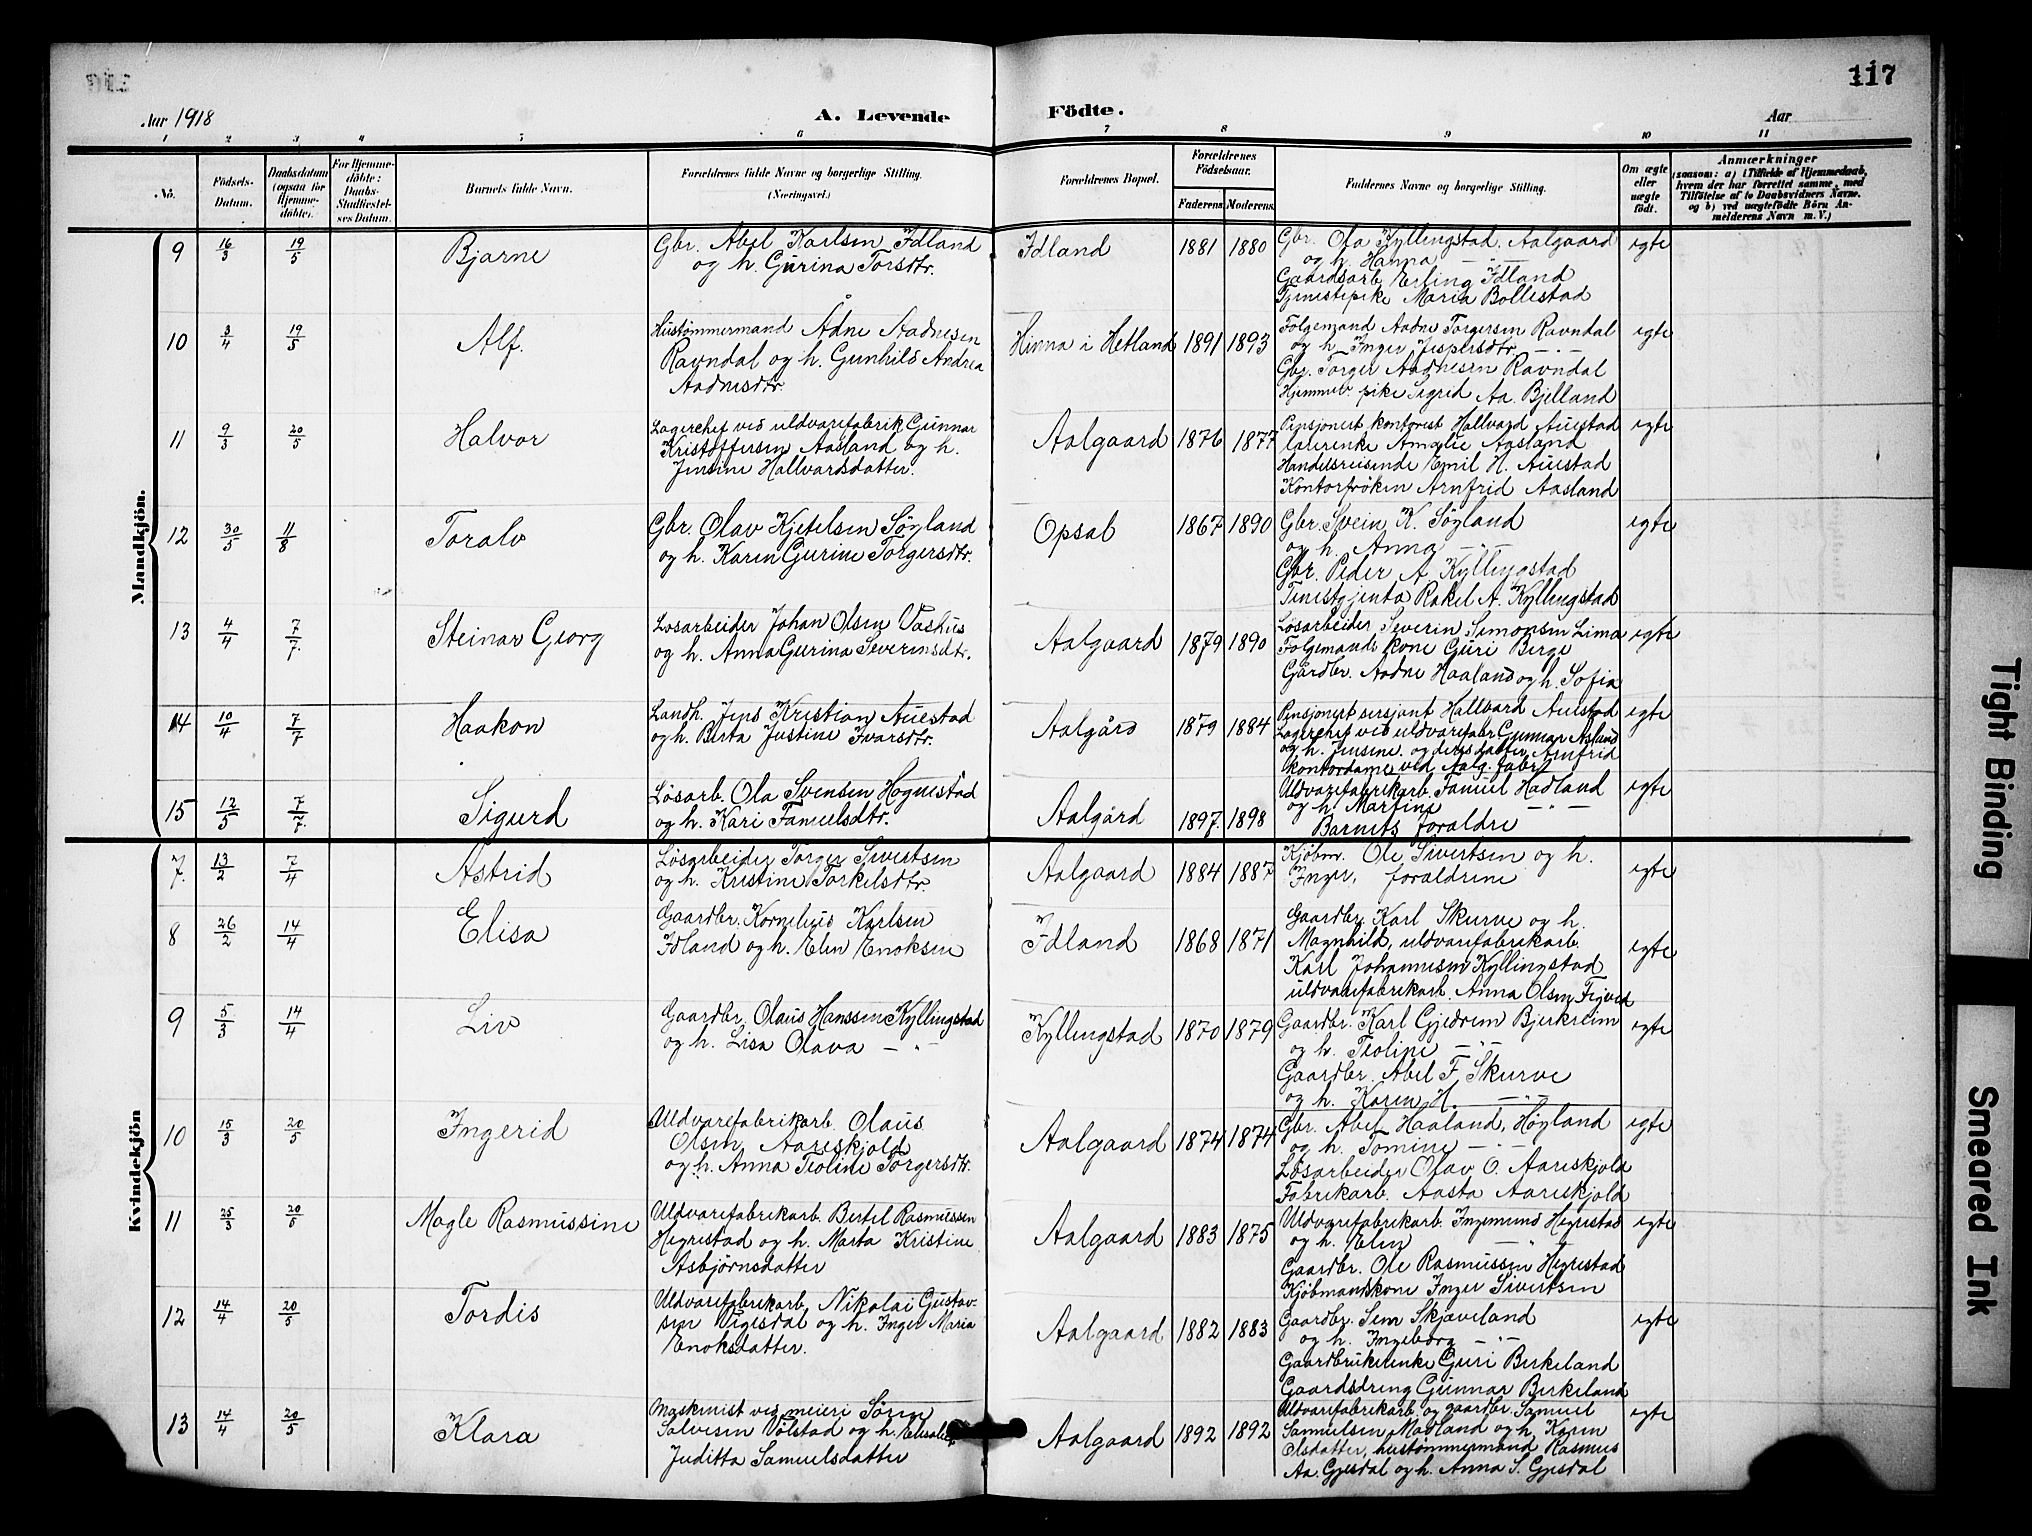 117
Aar 1918
A. Levende Födte.
Aar
1 2 3 4 5 6 7 8 9 10 11
No.
Födsels-Datum.
Daabsdatum (ogsaa for Hjemme-döbte).
For Hjemme-döbte: Daabs-Stadfæstel-ses Datum.
Barnets fulde Navn.
Forældrenes fulde Navne og borgerlige Stilling.
(Næringsvei.)
Forældrenes Bopæl.
Forældrenes Födselsaar.
Faderens. Moderens.
Faddernes Navne og borgerlige Stilling.
Om ægte eller uægte födt.
Anmærkninger
(saasom: a) i Tilfælde af Hjemmedaab, hvem der har forrettet samme, med Tilföielse af to Daabsvidners Navne, og b) ved uægtefödte Börn Anmelderens Navn m. V.)
Mandkjön.
9 16/3 19/5 Bjarne
Gbr. Abel Karlsen Idland
og h. Gurina Torsdtr.
Idland 1881 1880
Gbr. Ola Kyllingstad, Aalgaard
og h. Hanna — " —
Gaardsarb. Erling Idland
Tjenestepike Maria Bollestad
egte
10 3/4 19/5 Alf.
Hustømmermand Ådne Aadnesen
Ravndal og h. Gunhild Andrea
Aadnesdtr.
Hinna i Hetland 1891 1893
Følgemand Aadne Torgersen Ravndal
og h. Inger Jespersdtr — " —
Gbr. Torger Aadnesen Ravndal
Hjemmev. pike Sigrid Aa. Bjelland
egte
11 9/3 20/5 Halvor
Lagerchef ved uldvarefabrik Gunnar
Kristoffersen Aasland og h.
Jensine Hallvardsdatter.
Aalgaard 1876 1877
Pensjonert kontorist Hallvard Auestad
Amalie Aasland
Handelsreisende Emil H. Auestad
Kontorfrøken Arnfrid Aasland
egte
12 30/5 11/8 Toralv
Gbr. Olav Kjetelsen Søyland
og h. Karen Gurine Torgersdtr.
Opsal 1867 1890
Gbr. Svein K. Søyland
og h. Anna — " —
Gbr. Peder A. Kyllingstad
Tenestgjenta Rakel A. Kyllingstad
egte
13 4/4 7/7 Steinar Georg
Løsarbeider Johan Olsen Vashus
og h. Anna Gurina Severinsdtr.
Aalgaard 1879 1890
Løsarbeider Severin Simonsen Lima
Følgemands kone Guri Berge
Gårdbr. Aadne Haaland og h. Sofia
egte
14 10/4 7/7 Haakon
Landh. Jens Kristian Auestad
og h. Berta Justine Ivarsdtr.
Aalgård 1879 1884
Pensjonert sersjant Hallvard Auestad
Lagerchef ved uldvarefabr. Gunnar Asland
og h. Jensine og deres datter Arnfrid
kontordame ved Aalg. fabr.
egte
15 12/5 7/7 Sigurd
Løsarb. Ola Svensen Hognestad
og h. Kari Samuelsdtr.
Aalgård 1897 1898
Uldvarefabrikarb. Samuel Hadland
og h. Martine — " —
Barnets foraldre
egte
Kvindekjön
7. 13/2 7/4 Astrid
Løsarbeider Torger Sivertsen
og h. Kristine Torkelsdtr.
Aalgaard 1884 1887
Kjøbm. Ole Sivertsen og h.
Inger, foraldrene
egte
8 26/2 14/4 Elisa
Gaardbr. Kornelius Karlsen
Idland og h. Elen Enoksen
Idland 1868 1871
Gaardbr. Karl Skurve og h.
Magnhild, uldvarefabrikarb.
Karl Johannesen Kyllingstad
uldvarefabrikarb. Anna Olsen
egte
9 5/3 14/4 Liv
Gaardbr. Olaus Hanssen Kyllingstad
og h. Lisa Olava — " —
Kyllingstad 1870 1879
Gaardbr. Karl Gjedrem Bjerkreim
og h. Teoline — " —
Gaardbr. Abel F. Skurve
og h. Karen H. — " —
egte
10 15/3 20/5 Ingerid
Uldvarefabrikarb. Olaus
Olsen Aareskjold
og h. Anna Teoline Torgersdtr.
Aalgaard 1874 1874
Gbr. Abel Haaland, Høyland
og h. Tomine — " —
Løsarbeider Olav O. Aareskjold
Fabrikarb. Aasta Aareskjold
egte
11 25/3 20/5 Magle Rasmussine
Uldvarefabrikarb. Bertel Rasmussen
Hegrestad og h. Marta Kristine
Asbjørnsdatter
Aalgaard 1883 1875
Uldvarefabrikarb. Ingemund Hegrestad
og h. Elen — " —
Gaardbr. Ole Rasmussen Hegrestad
Kjøbmandskone Inger Sivertsen
egte
12 14/4 20/5 Tordis
Uldvarefabrikarb. Nikolai Gustav-
sen Vigesdal og h. Inger Maria
Enoksdatter.
Aalgaard 1882 1883
Gaardbr. Sem Skjæveland
og h. Ingeborg — " —
Gaardbrukerenke Guri Birkeland
Gaardsdreng Gunnar Birkeland
egte
13 14/4 20/5 Klara
Maskinist ved meieri Søren
Salvesen Vølstad og h. Elisabet
Juditta Samuelsdatter
Aalgaard 1892 1892
Uldvarefabrikarb. og gaardbr. Samuel
Samuelsen Madland og h. Karen
Olsdatter, hustømmermand Rasmus
Aa. Gjesdal og h. Anna S. Gjesdal
egte
Tight Binding
Smeared Ink